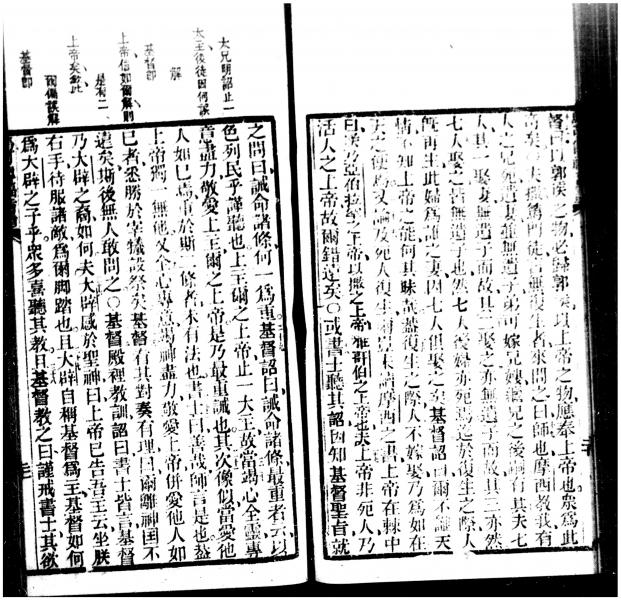 督曰以郭裴之物必歸郭裴以上帝之物應奉上帝也衆爲此
奇矣〇夫撒篤門徒言無復生者來問之曰師也摩西教我有
人之兄死遺妻雖無遺子弟可嫁兄嫂繼兄之後嗣有其夫七
人其一娶妻無遺子而故其二娶之亦無遺子而故其三亦然
七人娶之皆無遺子也然七人後婦亦死焉迨於復生之際人
旣再生此婦爲誰之妻因七人俱娶之矣基督曰爾不識天
情不知上帝之能何其昧哉蓋復生之際人不嫁娶乃爲如在
天之使焉又論及死人復生爾豈未讀摩西之書上帝在棘中
曰我乃亞伯拉罕之上帝以撒之上帝雅哥伯之上帝也夫上帝非死人乃
活人之上帝故爾錯遠矣〇或書士聽其詔因知基督聖旨就
太兄明詔止一
大主後徒因何誤
解
基督卽
上帝信如爾解則
是有二
上帝矣緣此
誤解
基督卽
之問曰誡命諸條何一爲重基督詔曰誡命諸條最重者云以
色列民乎謹聽也上主爾之上帝止一大主故當竭心全靈專
意盡力敬愛上主爾之上帝是乃最重誡也其次像似當愛他
人如己焉重於斯二條者未有法也書士曰善哉師言是也蓋
上帝獨一無他又全心專意竭神盡力敬愛上帝併愛他人如
己者悉勝於宰犧設祭矣基督有其對奏有理曰爾離神囯不
遠矣斯後無人敢問之〇基督殿裡教訓詔曰書士皆言基督
乃大辟之裔如何夫大辟感於聖神曰上帝已告吾主云坐朕
右手待服諸敵爲爾脚踏也且大辟自稱基督爲主基督如何
爲大辟之子乎衆多喜聽其教且基督教之曰謹戒書士其欲